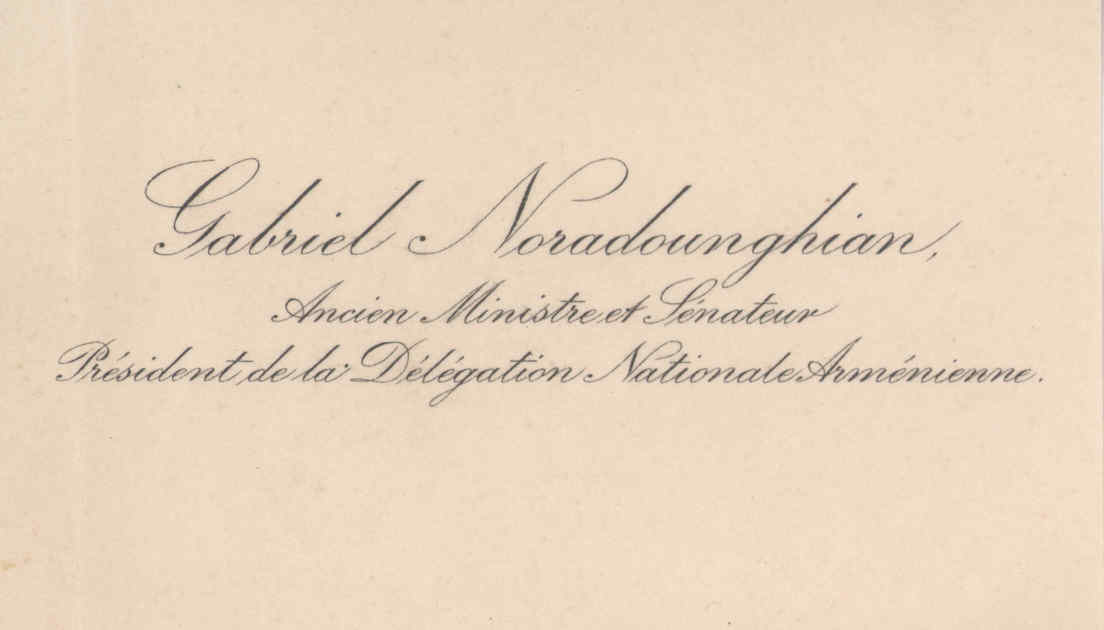 Gabriel Noradounghian,
Ancien Ministre et Sénateur
Président de la Délégation Nationale Arménienne.